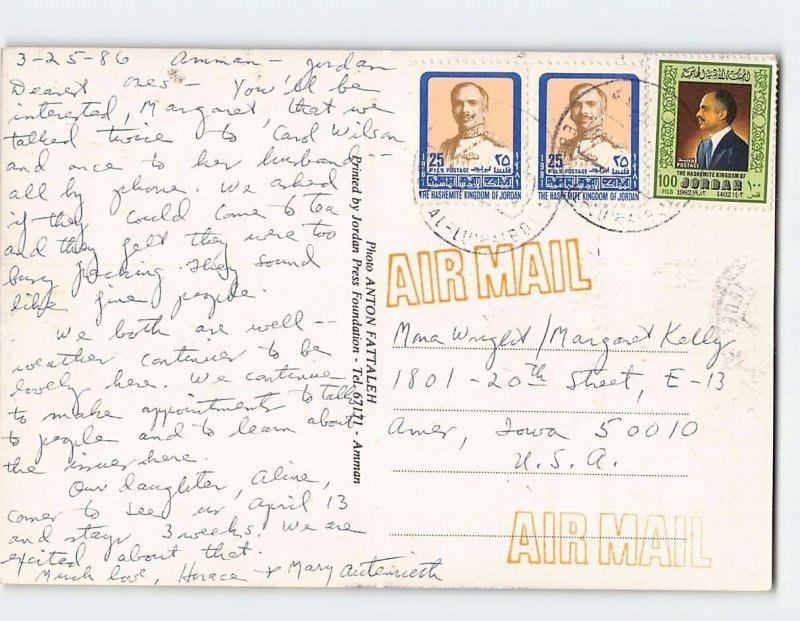 3-25-86 Amman - Jordan
Dearest ones - You'll be
interested, Margaret, that we
talked twice to Carol Wilson
and once to her husband --
all by phone. We asked
if they could come to tea
and they felt they were too
busy packing. They sound
like fine people.
We both are well --
weather continues to be
lovely here. We continue
to make appointments to talk
to people and to learn about
the issues here.
Our daughter, Aline,
comes to see us April 13
and stays 3 weeks. We are
excited about that.
Much love, Horace & Mary Autenrieth
Photo ANTON FATTALEH
Printed by Jordan Press Foundation - Tel. 67171 - Amman
25 ٢٥
FILS POSTAGE فلسا بريد
1981 ١٩٨١
THE HASHEMITE KINGDOM OF JORDAN
25 ٢٥
FILS POSTAGE فلسا بريد
1981 ١٩٨١
THE HASHEMITE KINGDOM OF JORDAN
المملكة الأردنية الهاشمية
POSTAGE
THE HASHEMITE KINGDOM OF
100 JORDAN ١٠٠
FILS 1982 ١٩٨٢ 1402 ١٤٠٢ فلس
AIR MAIL
Mona Wright/Margaret Kelly
1801 - 20th Street, E-13
Ames, Iowa 50010
U.S.A.
AIR MAIL